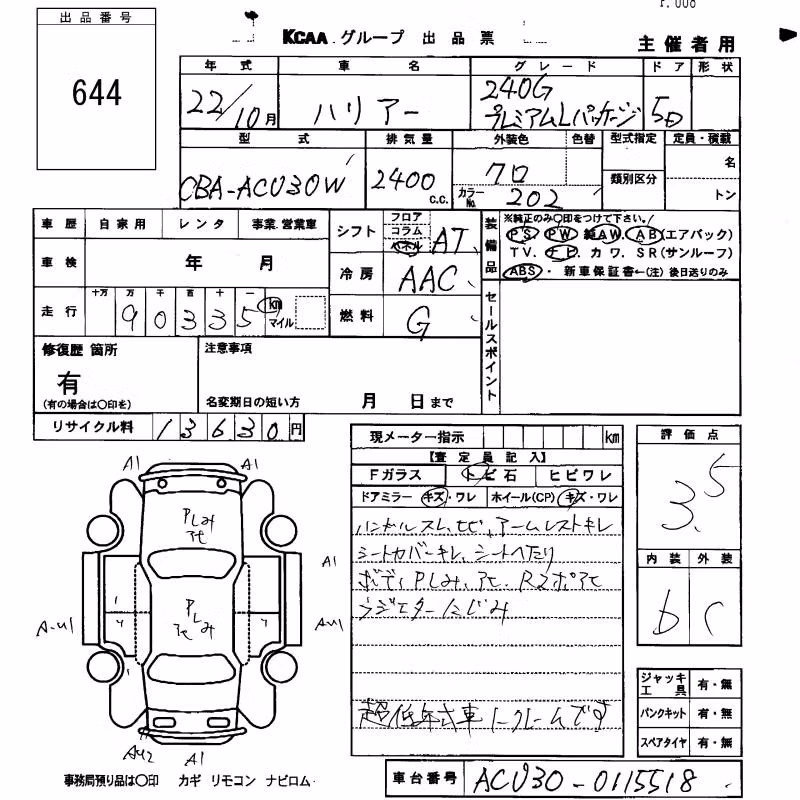 出品番号
644
KCAA グループ 出品票
主催者用
年式 車名 グレード ドア 形状
22/10月 ハリアー 240G プレミアムLパッケージ 5D
型式 排気量 外装色 色替 型式指定 定員・積載
CBA-ACU30W 2400 c.c. クロ 類別区分 名
カラーNo. 202 トン
車歴 自家用 レンタ 事業.営業車
シフト フロア コラム パネル AT
装備品 ※純正のみ○印をつけて下さい。
PS. PW. 純AW. AB(エアバック)
TV. ナビ. カワ. SR(サンルーフ)
ABS・ 新車保証書←(注)後日送りのみ
車検 年 月
冷房 AAC
走行 十万 万 千 百 十 一
90335 km マイル
燃料 G
セールスポイント
修復歴 箇所
有
(有の場合は○印を)
注意事項
名変期日の短い方 月 日まで
リサイクル料 13630円
現メーター指示 km
【査定員記入】
Fガラス トビ石 ヒビワレ
ドアミラー キズ・ワレ ホイール(CP) キズ・ワレ
ハンドルスレ,ヒビ、アームレストキレ
シートカバーキレ、シートヘたり
ボディPしみ、アセ、Rスポアセ
ラジエターにじみ
超低年式車 ノークレームです
評価点
3.5
内装 外装
b c
ジャッキ工具 有・無
パンクキット 有・無
スペアタイヤ 有・無
A1 A1
Pしみ
アセ
A1
Pしみ
アセ
A-U1 AU1
AU2 A1
事務局預り品は○印 カギ リモコン ナビロム
車台番号 ACU30-0115518